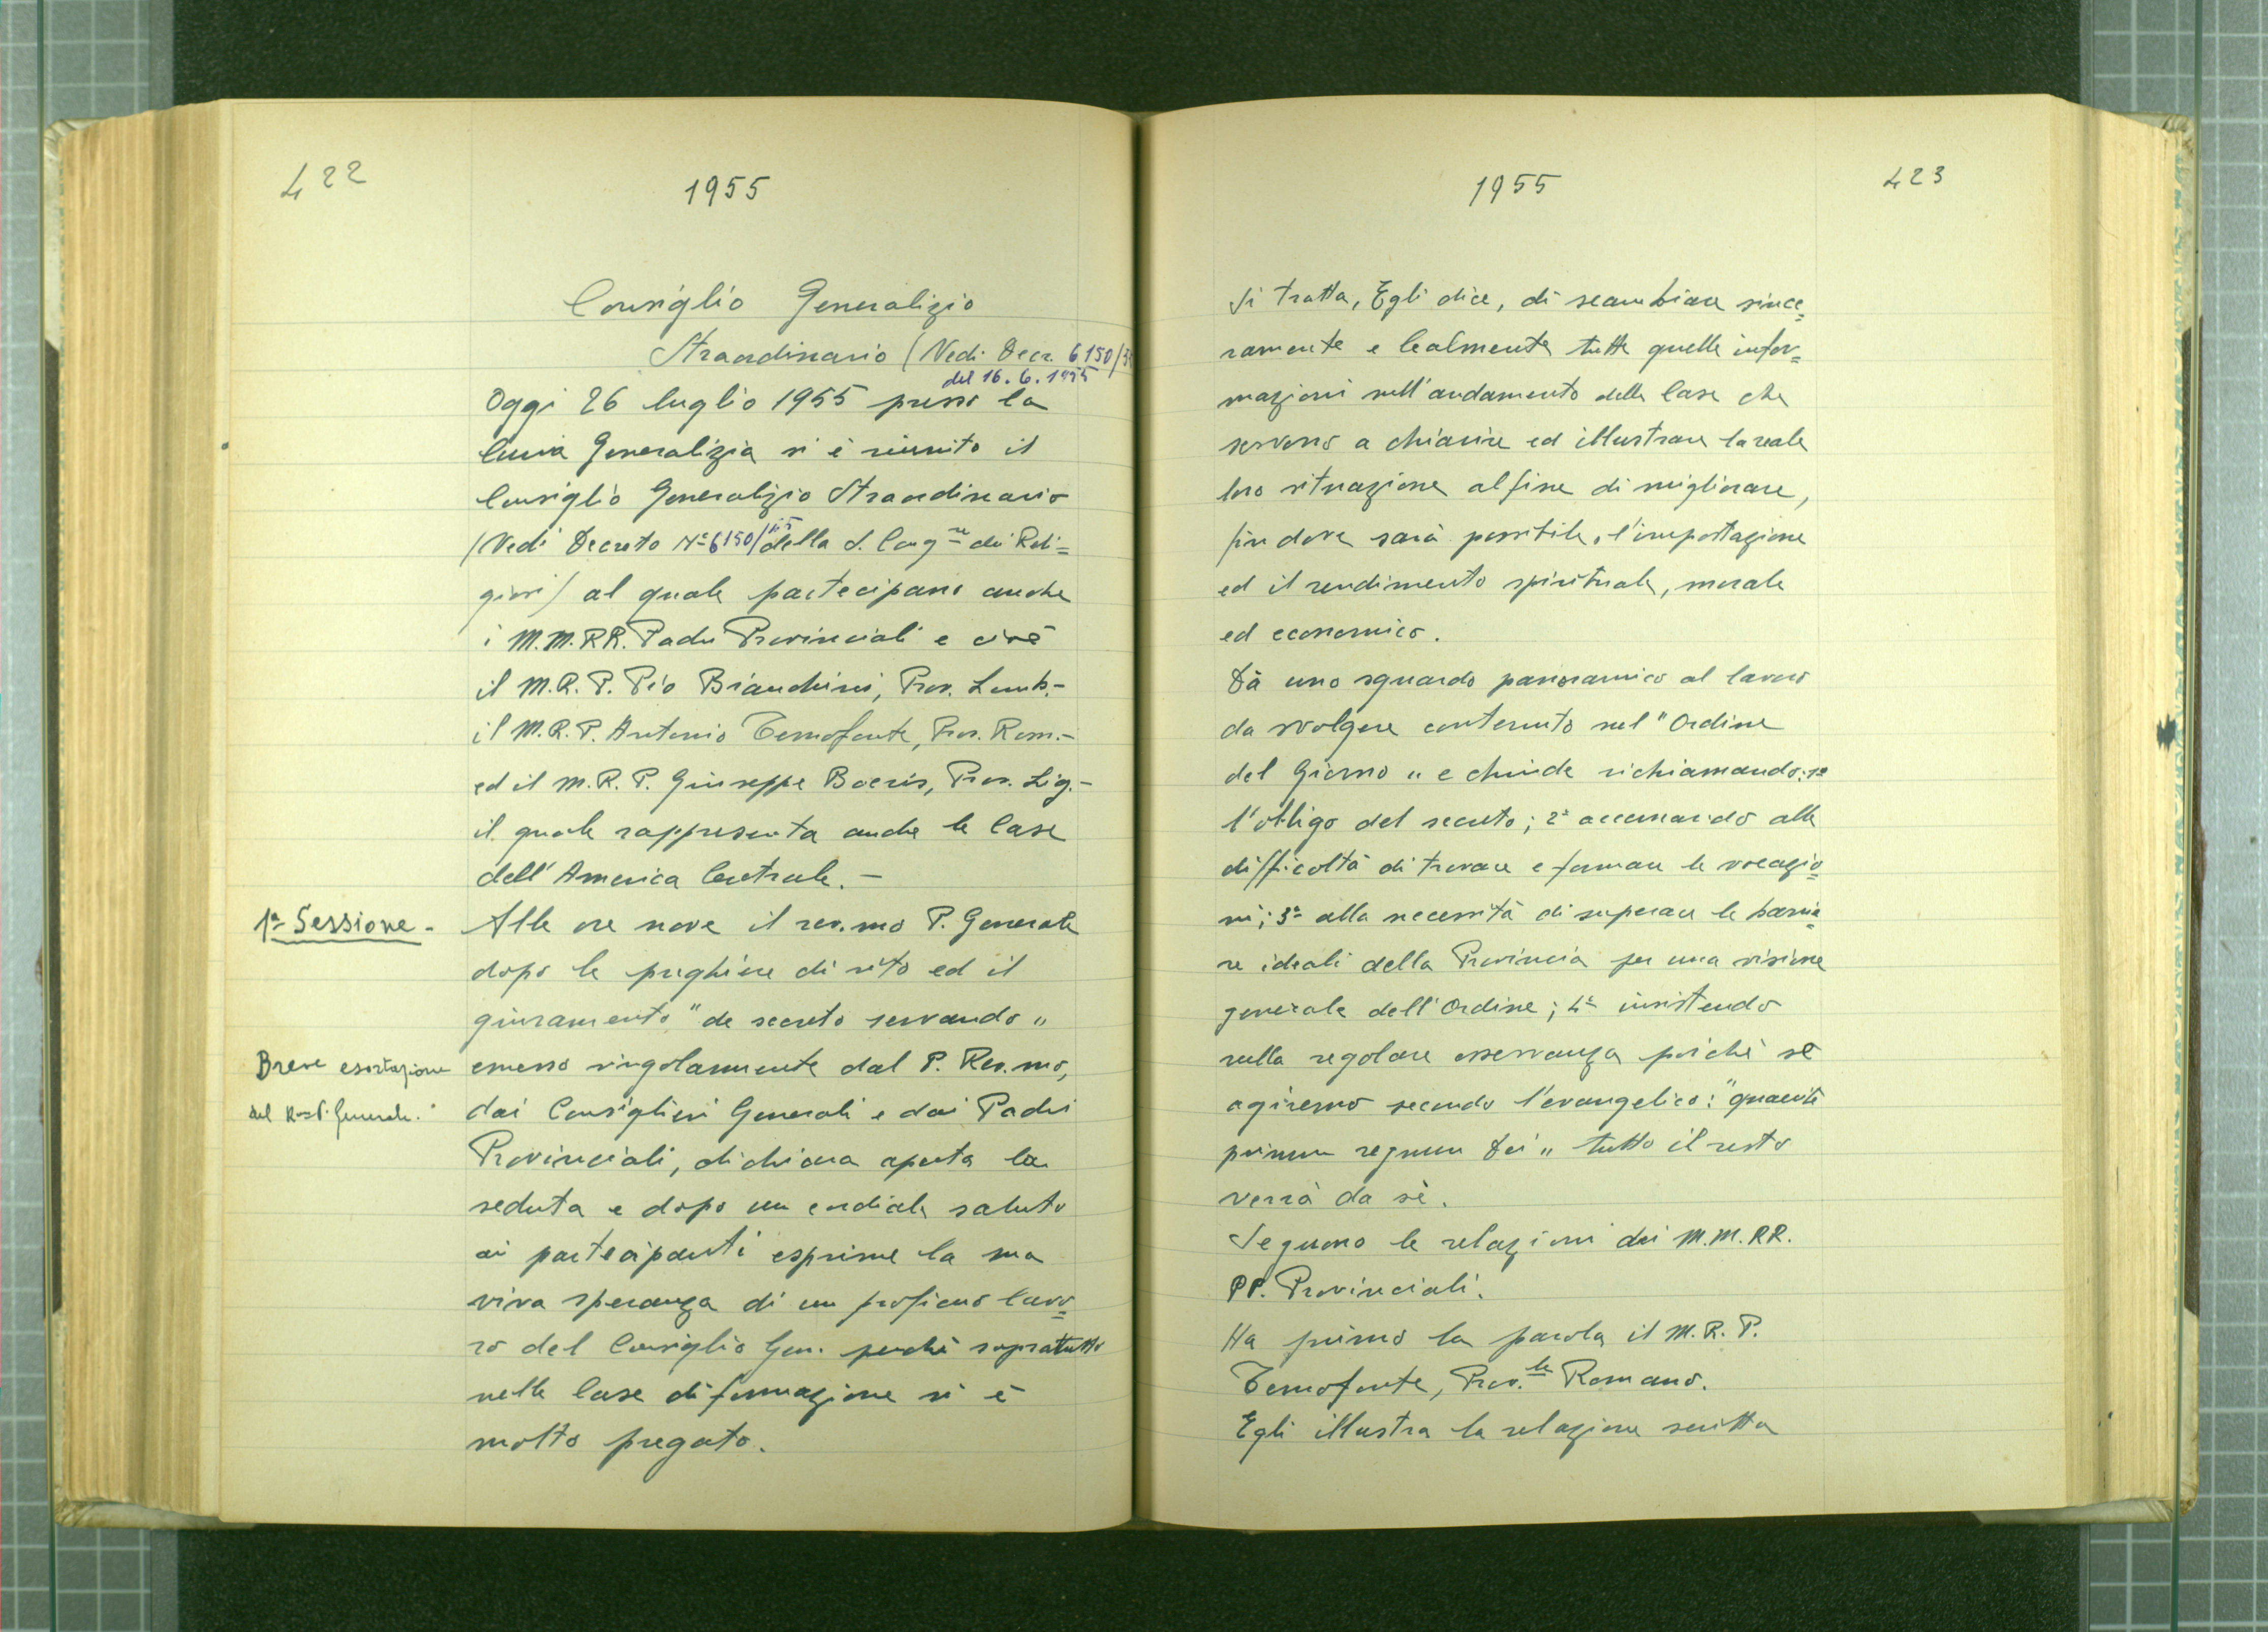 422
1955
Consiglio Generalizio
Straordinario (Vedi Decr. 6150/5
del 16.6.1955
Oggi 26 luglio 1955 presso la
Curia Generalizia si è riunito il
Consiglio Generalizio Straordinario
(Vedi Decreto Nº 6150/55 della S. Cong.ne dei Reli=
giosi) al quale partecipano anche
i M.M.RR. Padri Provinciali e cioè
il M.R.P. Pio Bianchini, Prov. Lomb.-
il M.R.P. Antonio Temofonte, Prov. Rom.-
ed il M.R.P. Giuseppe Boeris, Prov. Lig.-
il quale rappresenta anche le Case
dell'America Centrale.-
1ª Sessione-
Alle ore nove il rev.mo P. Generale
dopo le preghiere di rito ed il
giuramento "de secreto servando"
Breve esortazione
del R.mo P. Generale.
emesso singolarmente dal P. Rev.mo,
dai Consiglieri Generali e dai Padri
Provinciali, dichiara aperta la
seduta e dopo un cordiale saluto
ai partecipanti esprime la sua
viva speranza di un proficuo lavo=
ro del Consiglio Gen. perchè sopratutto
nelle Case di formazione si è
molto pregato.
1955
423
Si tratta, Egli dice, di scambiare since=
ramente e lealmente tutte quelle infor=
mazioni sull'andamento delle Case che
servono a chiarire ed illustrare la reale
loro situazione al fine di migliorare,
fin dove sarà possibile, l'impostazione
ed il rendimento spirituale, morale
ed economico.
Dà uno sguardo panoramico al lavoro
da svolgere contenuto nel "Ordine
del Giorno" e chiude richiamando: 1º
l'obbligo del secreto; 2º accennando alle
difficoltà di trovare e formare le vocazio=
ni; 3º alla necessità di superare le barrie=
re ideali della Provincia per una visione
generale dell'Ordine; 4º insistendo
sulla regolare osservanza poichè se
agiremo secondo l'evangelico: "quaerite
primum regnum Dei" tutto il resto
verrà da sè.
Seguono le relazioni dei M.M.RR.
PP. Provinciali.
Ha primo la parola il M.R.P.
Temofonte, Prov.le Romano.
Egli illustra la relazione scritta